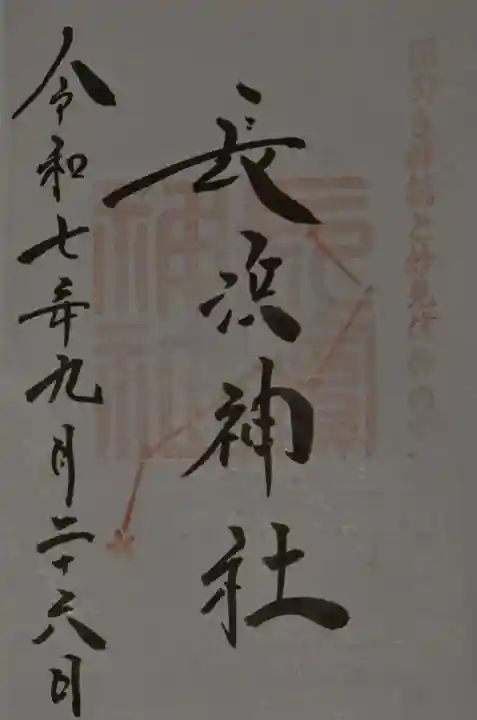 長浜神社
令和七年九月二十六日